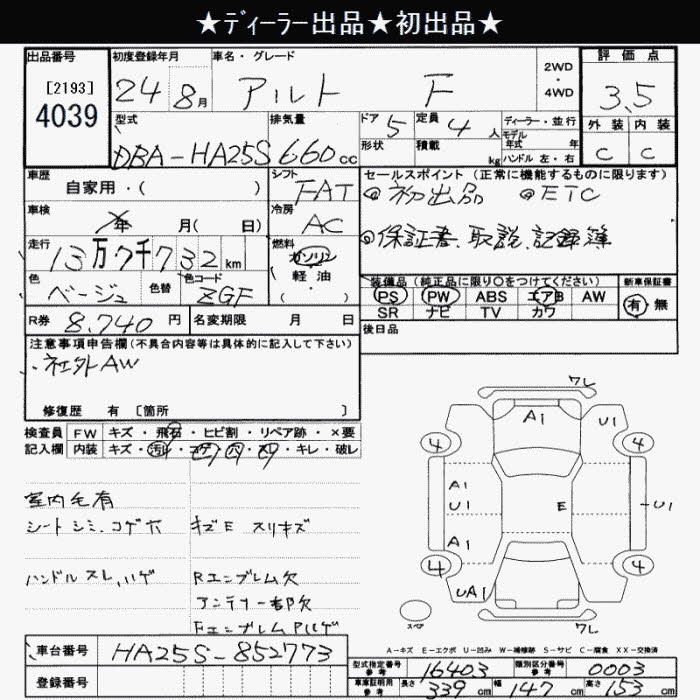 ★ディーラー出品★初出品★
出品番号 初度登録年月 車名・グレード 評価点
[2193]
4039
24 8月 アルト F 2WD・4WD 3.5
型式 排気量 ドア 定員 ディーラー・並行 外装 内装
DBA-HA25S 660cc 5 4人 モデル年式 年 C C
形状 積載 kg ハンドル 左・右
車歴 シフト セールスポイント (正常に機能するものに限ります)
自家用・( ) FAT ◎初出品 ◎ETC
車検 年 月( 日) 冷房 AC
◎保証書、取説、記録簿
走行 13万7千732km 燃料 ガソリン・軽油・( )
色 色替 色コード 装備品 (純正品に限り○をつけてください) 新車保証書
ベージュ ZGF PS PW ABS エアB AW 有・無
SR ナビ TV カワ
R券 8,740円 名変期限 月 日 後日品
注意事項申告欄(不具合内容等は具体的に記入して下さい)
・社外AW
修復歴 有 [箇所 ]
検査員 FW キズ・飛石・ヒビ割・リペア跡・×要
記入欄 内装 キズ・汚れ・コゲ・穴・スレ・キレ・破レ
室内毛有
シートシミ、コゲ穴 キズE スリキズ
ハンドルスレ、ハゲ Rエンブレム欠
アンテナ一部欠
Fエンブレムハゲ
ワレ
A1 U1
4 4
A1
U1 E U1
A1
4 4
UA1
スペア ワレ
A-キズ E-エクボ U-凹み W-補修跡 S-サビ C-腐食 XX-交換済
車台番号 HA25S-852773
登録番号
型式指定番号 参考 16403 類別区分番号 参考 0003
車庫証明用 参考 長さ 339cm 幅 147cm 高さ 153cm